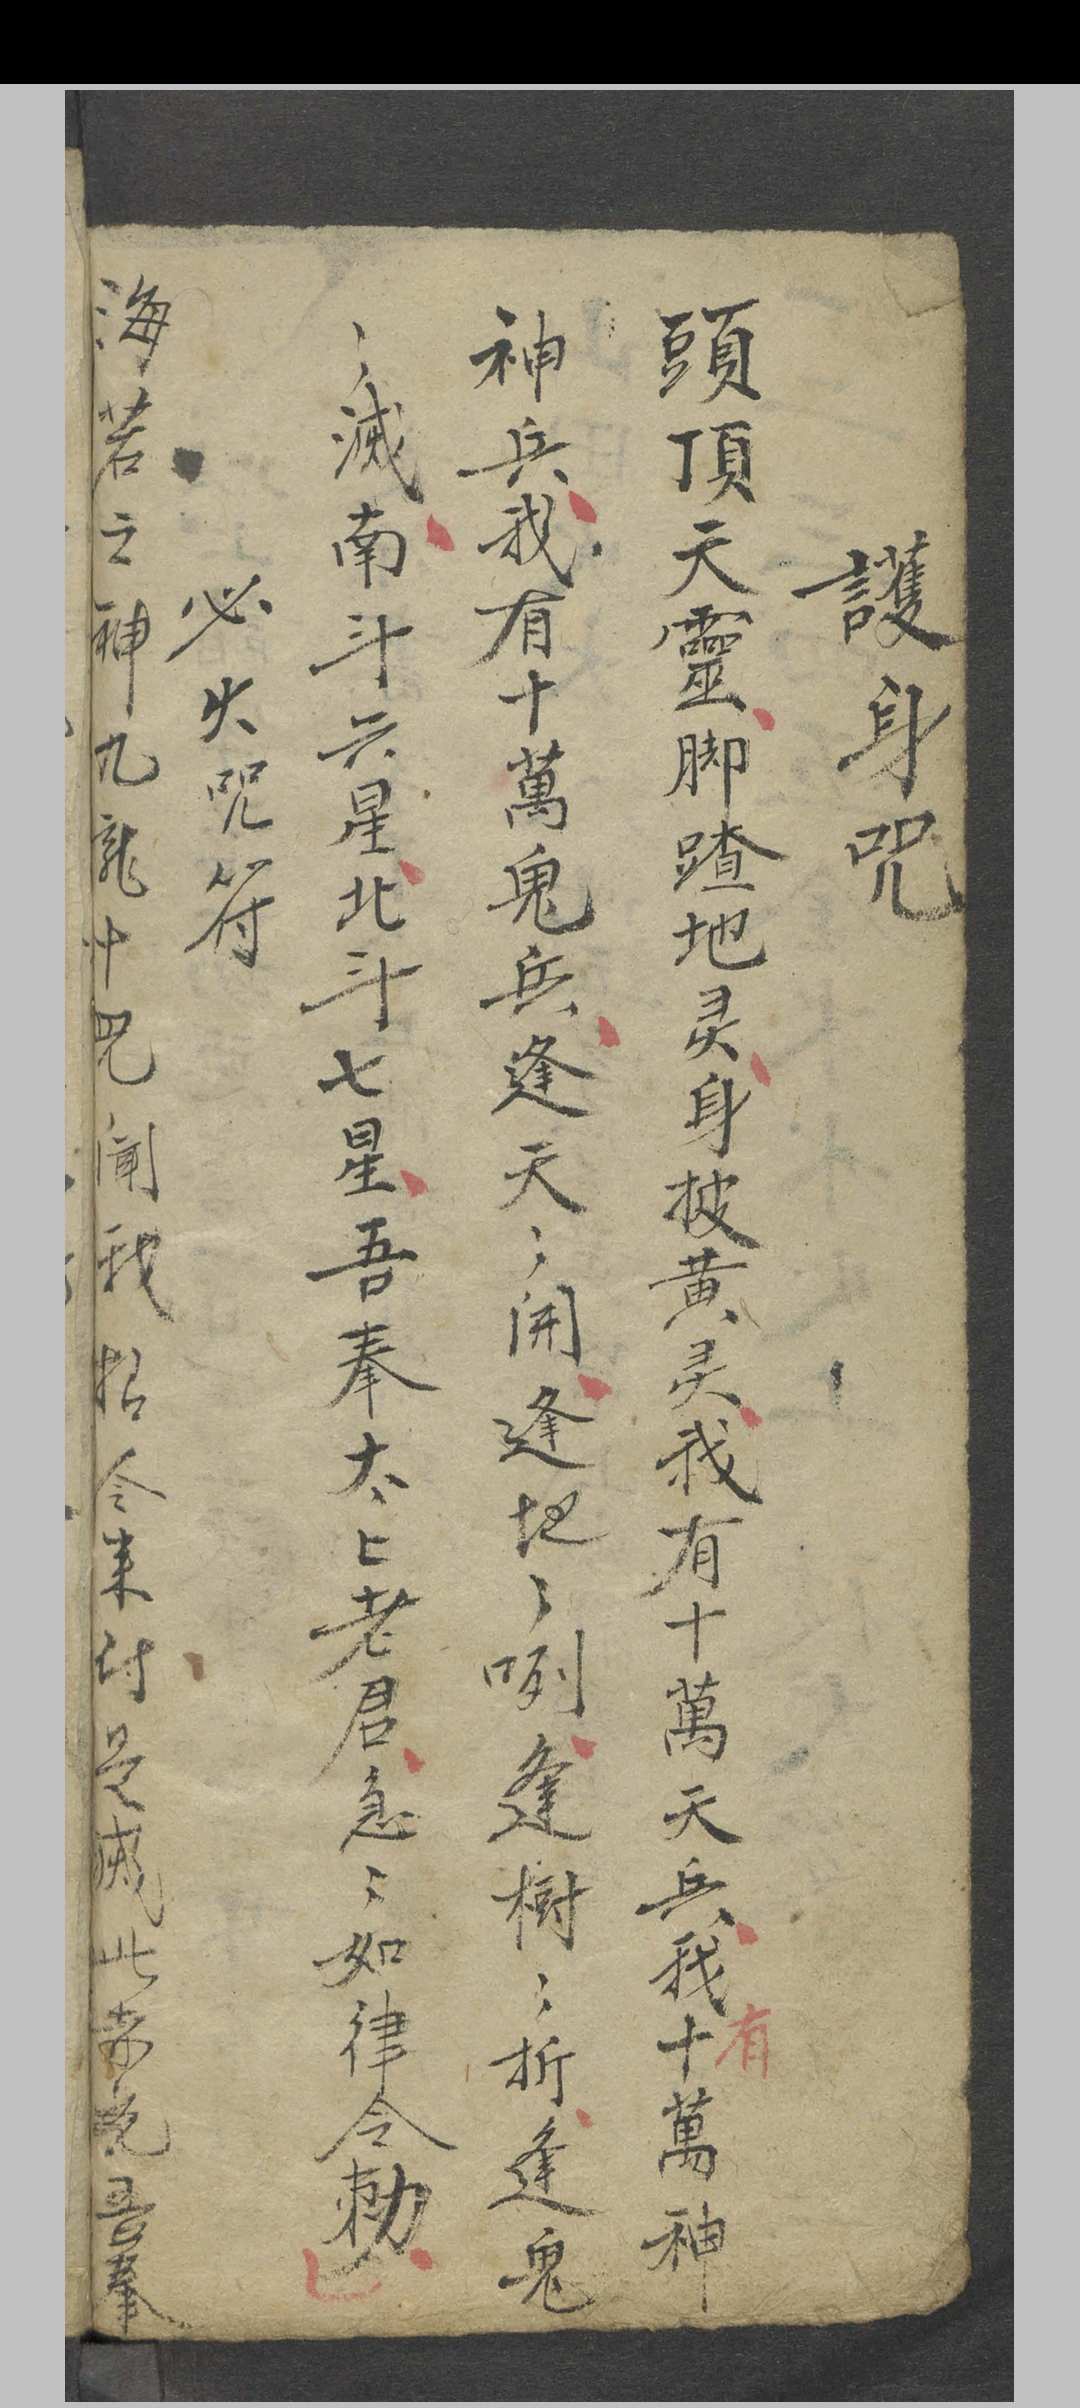 護身咒
頭頂天靈脚蹅地灵身披黄灵我有十萬天兵我有十萬神
神兵我有十萬鬼兵逢天〻開逢地〻咧逢樹〻折逢鬼
〻滅南斗六星北斗七星吾奉太上老君急〻如律令勅
必火咒符
海若之神九龍十咒聞我招令来付是滅此赤光吾奉